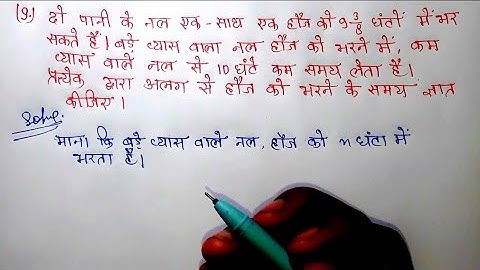 (9.) दो पानी के नल एक-साथ एक हौज को 9 3/8 घंटों में भर
सकते हैं। बड़े व्यास वाला नल हौज को भरने में, कम
व्यास वाले नल से 10 घंटे कम समय लेता है।
प्रत्येक द्वारा अलग से हौज को भरने के समय ज्ञात
कीजिए।
Solⁿ:-
माना कि बड़े व्यास वाले नल, हौज को n घंटा में
भरता है।